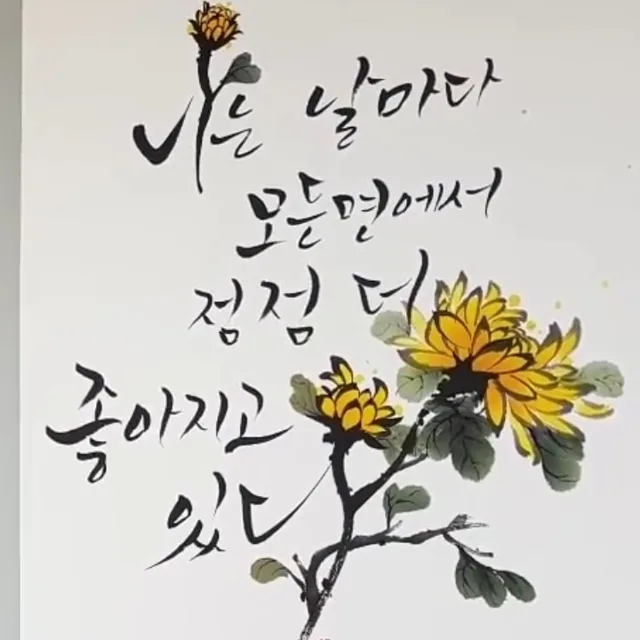 나는 날마다
모든면에서
점점 더
좋아지고
있다